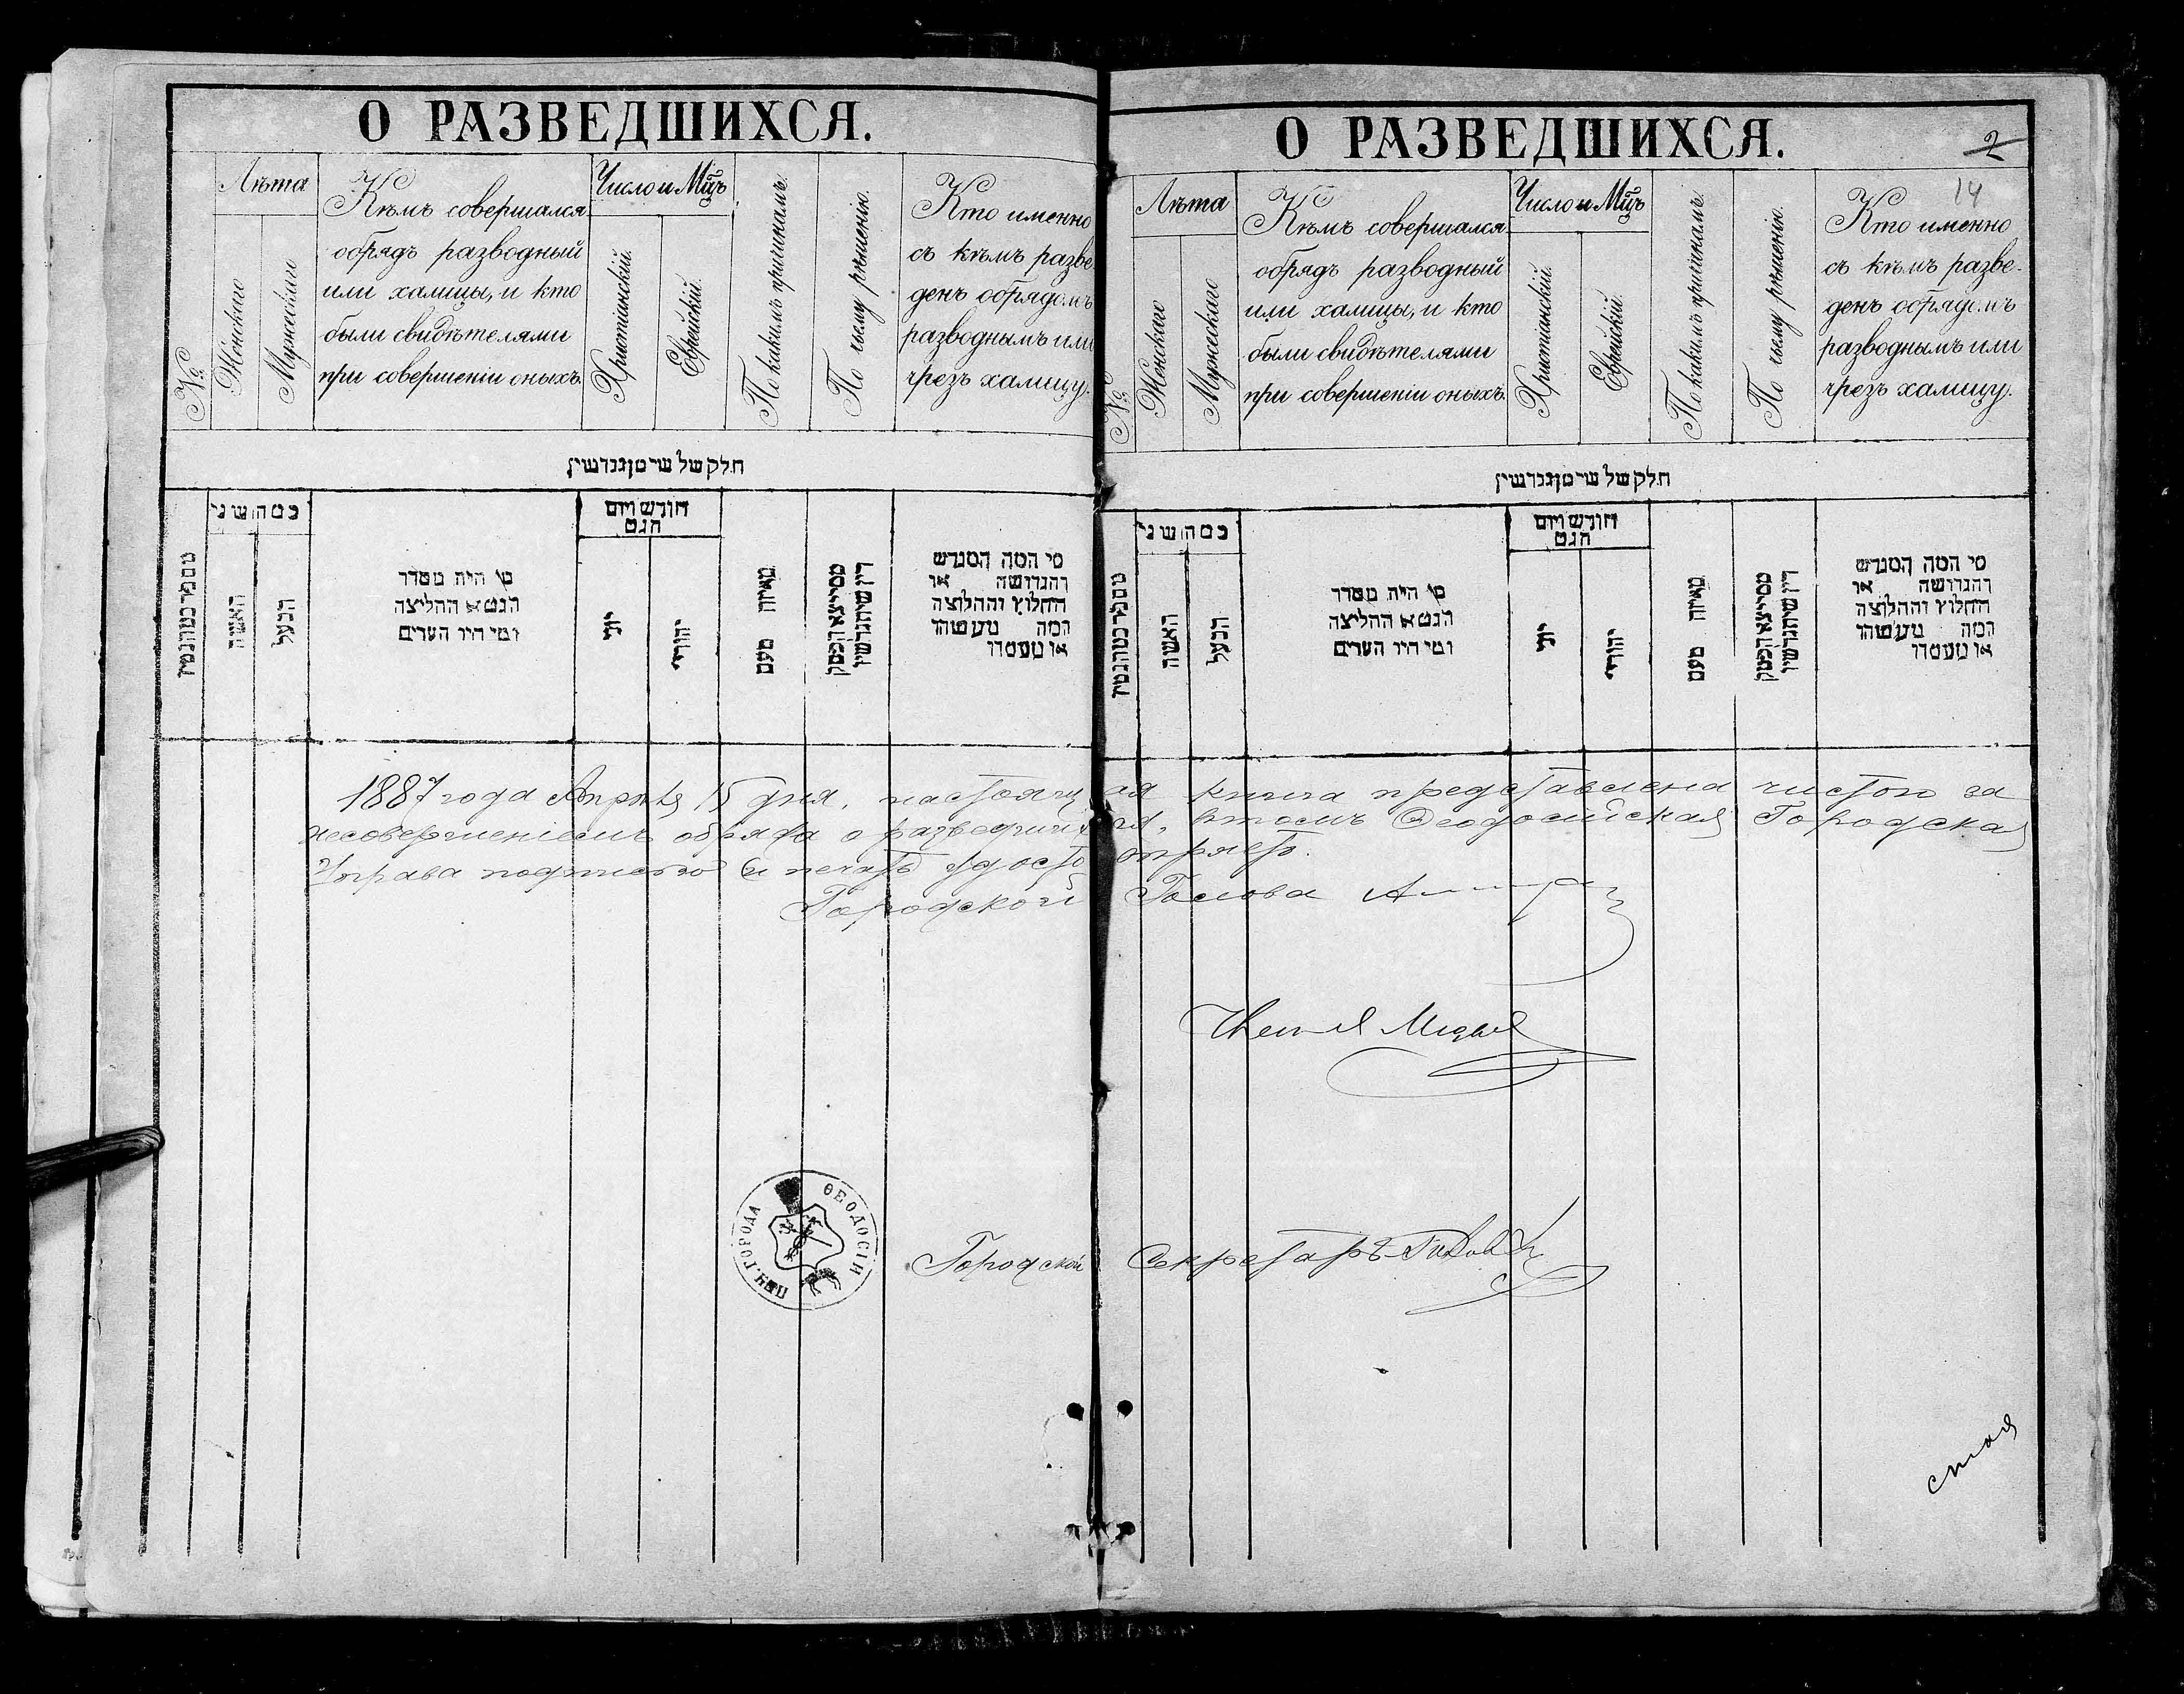 О РАЗВЕДШИХСЯ.
№
Лѣта
Женскаго
Мужескаго
Кѣмъ совершался
обрядъ разводный
или халицы, и кто
были свидѣтелями
при совершеніи оныхъ.
Число и Мц҃ъ
Христіанскій.
Еврейскій.
По какимъ причинамъ.
По чьему рѣшенію.
Кто именно
съ кѣмъ разве-
денъ обрядомъ
разводнымъ или
чрезъ халицу.
חלק של שי מן גנדשין
כמה שני
האשה
הבעל
מי היה מסדר
הגט או החליצה
ומי היו העדים
חודש ויום
הגט
יוני
יהודי
מאיזה טעם
מי המה המגרש
והגרושה או
החלוץ והחלוצה
О РАЗВЕДШИХСЯ.
2
14
№
Лѣта
Женскаго
Мужескаго
Кѣмъ совершался
обрядъ разводный
или халицы, и кто
были свидѣтелями
при совершеніи оныхъ.
Число и Мц҃ъ
Христіанскій.
Еврейскій.
По какимъ причинамъ.
По чьему рѣшенію.
Кто именно
съ кѣмъ разве-
денъ обрядомъ
разводнымъ или
чрезъ халицу.
חלק של שי מן גנדשין
כמה שני
האשה
הבעל
מי היה מסדר
הגט או החליצה
ומי היו העדים
חודש ויום
הגט
יוני
יהודי
מאיזה טעם
מי המה המגרש
והגרושה או
החלוץ והחלוצה
1887 года Апрѣля 15 дня, настоящая книга представлена чистою за
несовершеніемъ обряда о разведшихся, въ томъ Ѳеодосійская Городская
Управа подписью и печатью удостовѣряетъ.
Городской Голова
Членъ
ѲЕОДОСІИ
ГОРОДА
Городской Секретарь